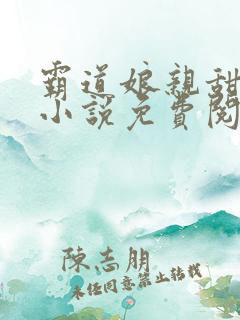 霸道娘親甜
小說免費閱
陳志朋
未任同意禁止轉載